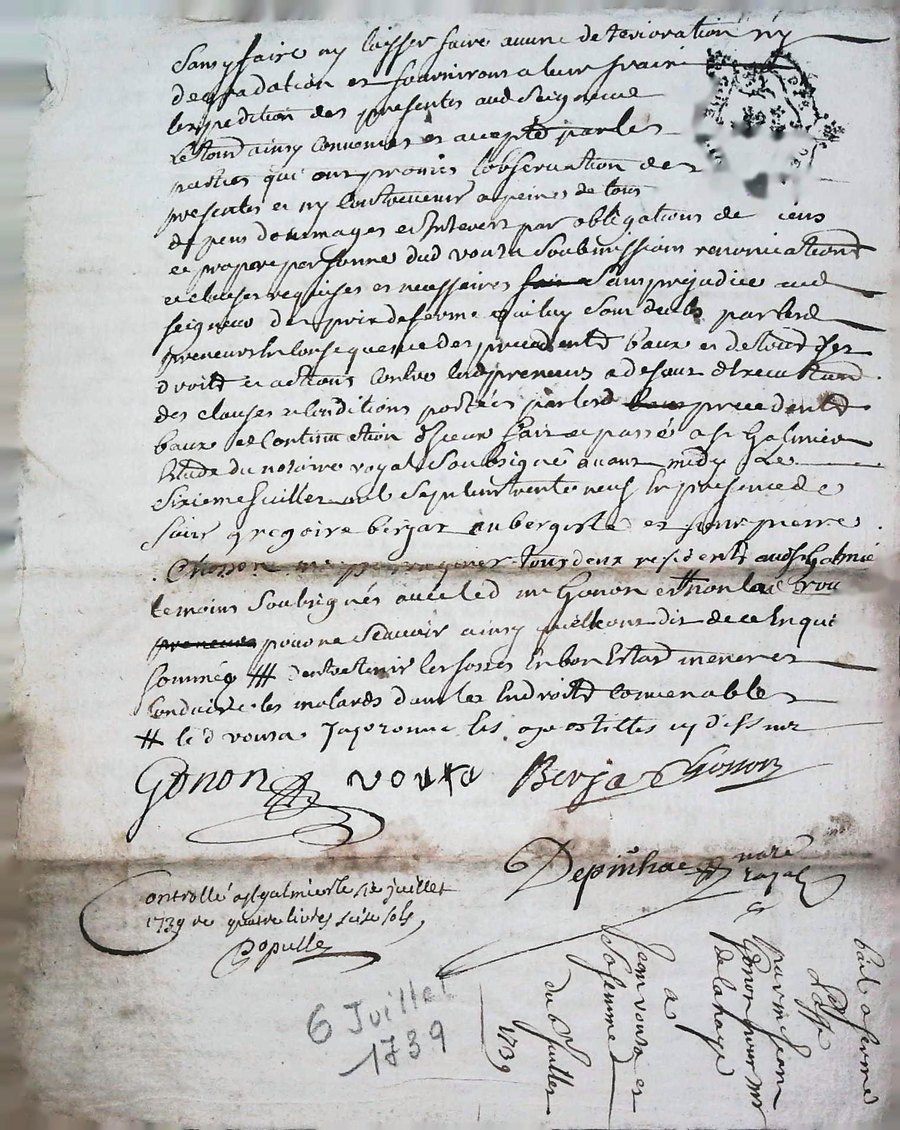 Sans y faire ny laisser faire aucune deterioration ny
degradation et fourniront a leur frais
lexpedition des presentes aud Seigneur
Le tout ainsy convenu et accepté par les
parties qui ont promis lobservation des
presentes et ny contrevenir a peines de tous
depens dommages et Interets par obligations de biens
et propre personne dud vouta Soubmissions renonciations
et clauses requises et necessaires Sans prejudice aud
seigneur du prix de ferme a luy deub par lesd
preneurs En consequence des precedents baux et de tous Ses
droits et actions contre lesd preneurs a defaut dexecution
des clauses et conditions portées par lesd precedents
baux et Continuation diceux fait et passé a st Galmier
Etude du notaire royal Soubsigné avant midy Le
Sixieme Juillet mil Sept cent trente neuf En presence de
Sieur gregoire berjat aubergiste et Sieur pierre
Chosson tous deux residents aud st Galmié
temoins Soubsignés avec led mr Gonon et non la
preneurs pour ne Scavoir ainsy quelle ont dit de ce Enquis
Sommée # dentretenir les fosses En bon Estat mener et
Conduire les malards dans les Endroits convenables
# led vouta Japrouve les apostilles cy dessus
Gonon vouta Berjat Chosson
Depinhac nore
royal
Controllé a st galmier le six juillet
1739 re quatre livres seise sols
Populle
6 Juillet
1739
bail a ferme
passé
par mr Jean
Gonon pour mr
Delahaye
a
Jean vouta et
Sa femme
du 6 Juillet
1739